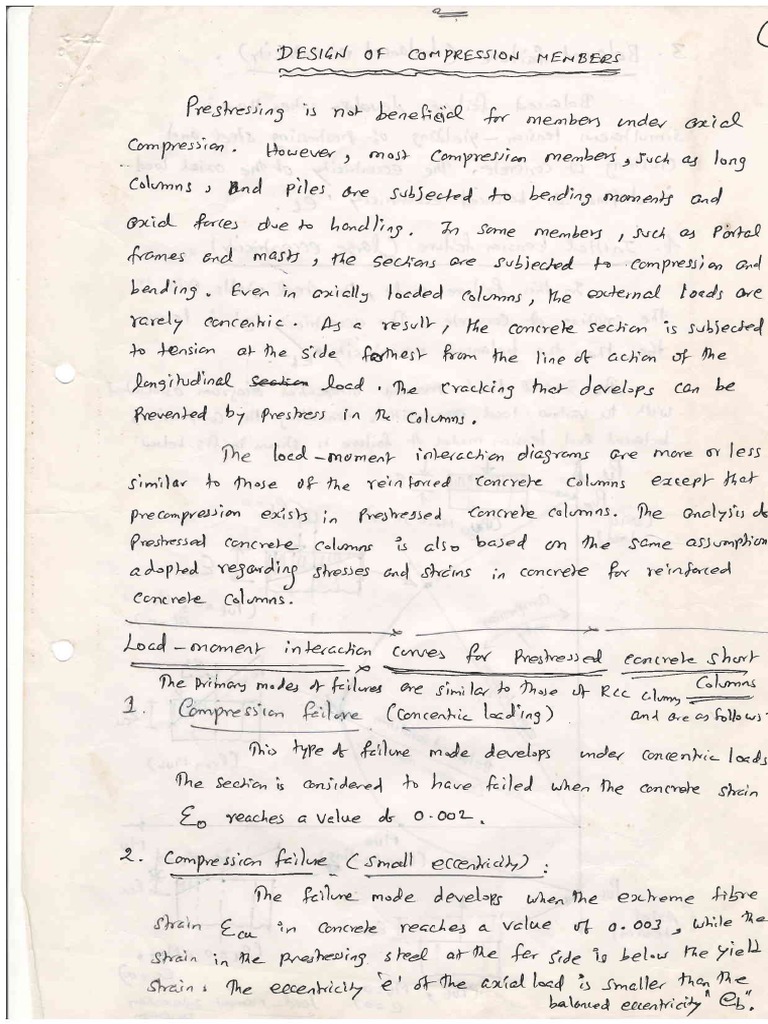 DESIGN OF COMPRESSION MEMBERS
Prestressing is not beneficial for members under axial
compression. However, most compression members, such as long
columns, and piles are subjected to bending moments and
axial forces due to handling. In some members, such as Portal
frames and masts, the sections are subjected to compression and
bending. Even in axially loaded columns, the external loads are
rarely concentric. As a result, the concrete section is subjected
to tension at the side farthest from the line of action of the
longitudinal section load. The cracking that develops can be
prevented by prestress in the columns.
The load-moment interaction diagrams are more or less
similar to those of the reinforced concrete columns except that
precompression exists in prestressed concrete columns. The analysis of
prestressed concrete columns is also based on the same assumption
adopted regarding stresses and strains in concrete for reinforced
concrete columns.
Load-moment interaction curves for prestressed concrete short
columns
The primary modes of failures are similar to those of RCC column,
and are as follows:
1. Compression failure (concentric loading)
This type of failure mode develops under concentric loads
The section is considered to have failed when the concrete strain
ε₀ reaches a value of 0.002.
2. Compression failure (small eccentricity):
The failure mode develops when the extreme fibre
strain εcu in concrete reaches a value of 0.003, while the
strain in the prestressing steel at the far side is below the yield
strain. The eccentricity 'e' of the axial load is smaller than the
balanced eccentricity "eb".